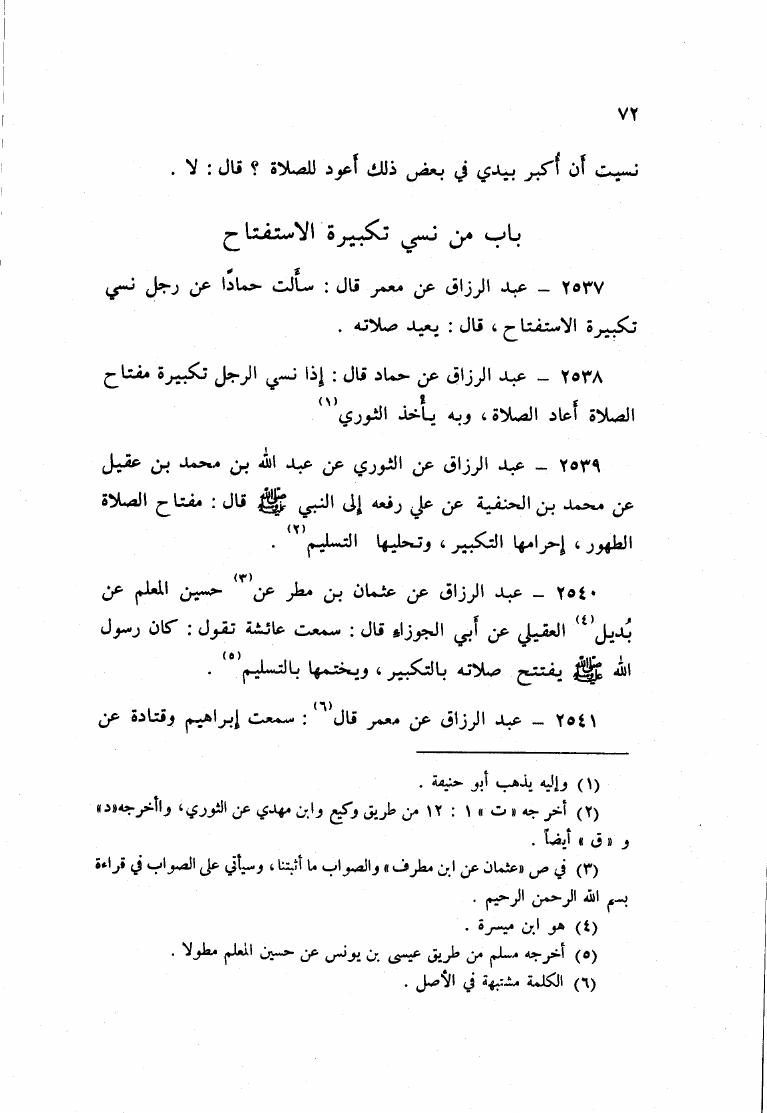 ٧٢
نسيت أن أُكبر بيدي في بعض ذلك أعود للصلاة ؟ قال : لا .
باب من نسي تكبيرة الاستفتاح
٢٥٣٧ – عبد الرزاق عن معمر قال : سأَلت حمادًا عن رجل نسي
تكبيرة الاستفتاح ، قال : يعيد صلاته .
٢٥٣٨ – عبد الرزاق عن حماد قال : إذا نسي الرجل تكبيرة مفتاح
الصلاة أعاد الصلاة ، وبه يأْخذ الثوري(١)
٢٥٣٩ – عبد الرزاق عن الثوري عن عبد الله بن محمد بن عقيل
عن محمد بن الحنفية عن علي رفعه إلى النبي ﷺ قال : مفتاح الصلاة
الطهور ، إحرامها التكبير ، وتحليها التسليم(٢) .
٢٥٤٠ – عبد الرزاق عن عثمان بن مطر عن(٣) حسين المعلم عن
بُديل(٤) العقيلي عن أبي الجوزاء قال : سمعت عائشة تقول : كان رسول
الله ﷺ يفتتح صلاته بالتكبير ، ويختمها بالتسليم(٥) .
٢٥٤١ – عبد الرزاق عن معمر قال(٦) : سمعت إبراهيم وقتادة عن
(١) وإليه يذهب أبو حنيفة .
(٢) أخرجه « ت » ١ : ١٢ من طريق وكيع وابن مهدي عن الثوري، واأخرجه«د»
و « ق » أيضاً .
(٣) في ص «عثمان عن ابن مطرف» والصواب ما أثبتنا، وسيأتي على الصواب في قراءة
بسم الله الرحمن الرحيم .
(٤) هو ابن ميسرة .
(٥) أخرجه مسلم من طريق عيسى بن يونس عن حسين المعلم مطولا .
(٦) الكلمة مشتبهة في الأصل .